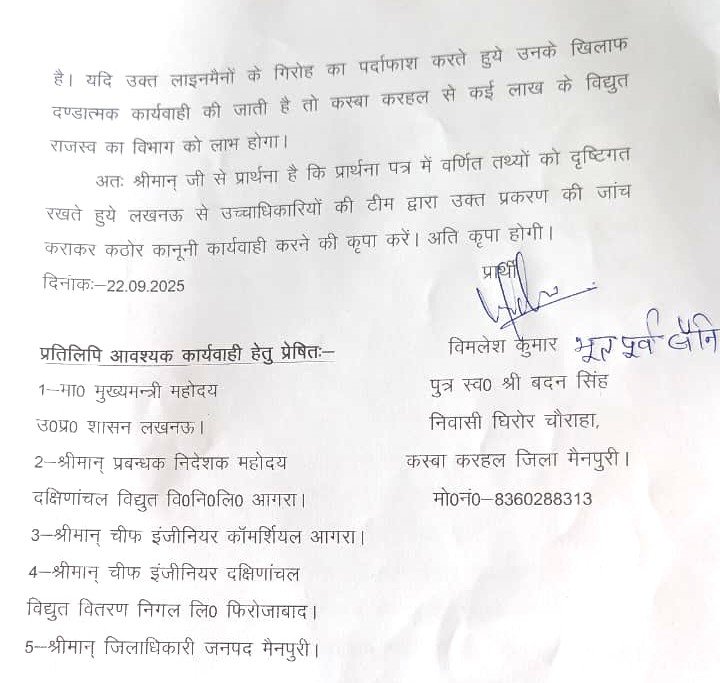 है। यदि उक्त लाइनमैनों के गिरोह का पर्दाफाश करते हुये उनके खिलाफ
दण्डात्मक कार्यवाही की जाती है तो कस्बा करहल से कई लाख के विद्युत
राजस्व का विभाग को लाभ होगा।
अतः श्रीमान् जी से प्रार्थना है कि प्रार्थना पत्र में वर्णित तथ्यों को दृष्टिगत
रखते हुये लखनऊ से उच्चाधिकारियों की टीम द्वारा उक्त प्रकरण की जांच
कराकर कठोर कानूनी कार्यवाही करने की कृपा करें। अति कृपा होगी।
दिनांकः–22.09.2025
प्रार्थी
विमलेश कुमार भूतपूर्व
पुत्र स्व0 श्री बदन सिंह
निवासी घिरोर चौराहा,
कस्बा करहल जिला मैनपुरी।
मो0नं0–8360288313
प्रतिलिपि आवश्यक कार्यवाही हेतु प्रेषितः–
1–मा0 मुख्यमन्त्री महोदय
उ0प्र0 शासन लखनऊ।
2–श्रीमान् प्रबन्धक निदेशक महोदय
दक्षिणांचल विद्युत वि0नि0लि0 आगरा।
3–श्रीमान् चीफ इंजीनियर कॉमर्शियल आगरा।
4–श्रीमान् चीफ इंजीनियर दक्षिणांचल
विद्युत वितरण निगल लि0 फिरोजाबाद।
5–श्रीमान् जिलाधिकारी जनपद मैनपुरी।